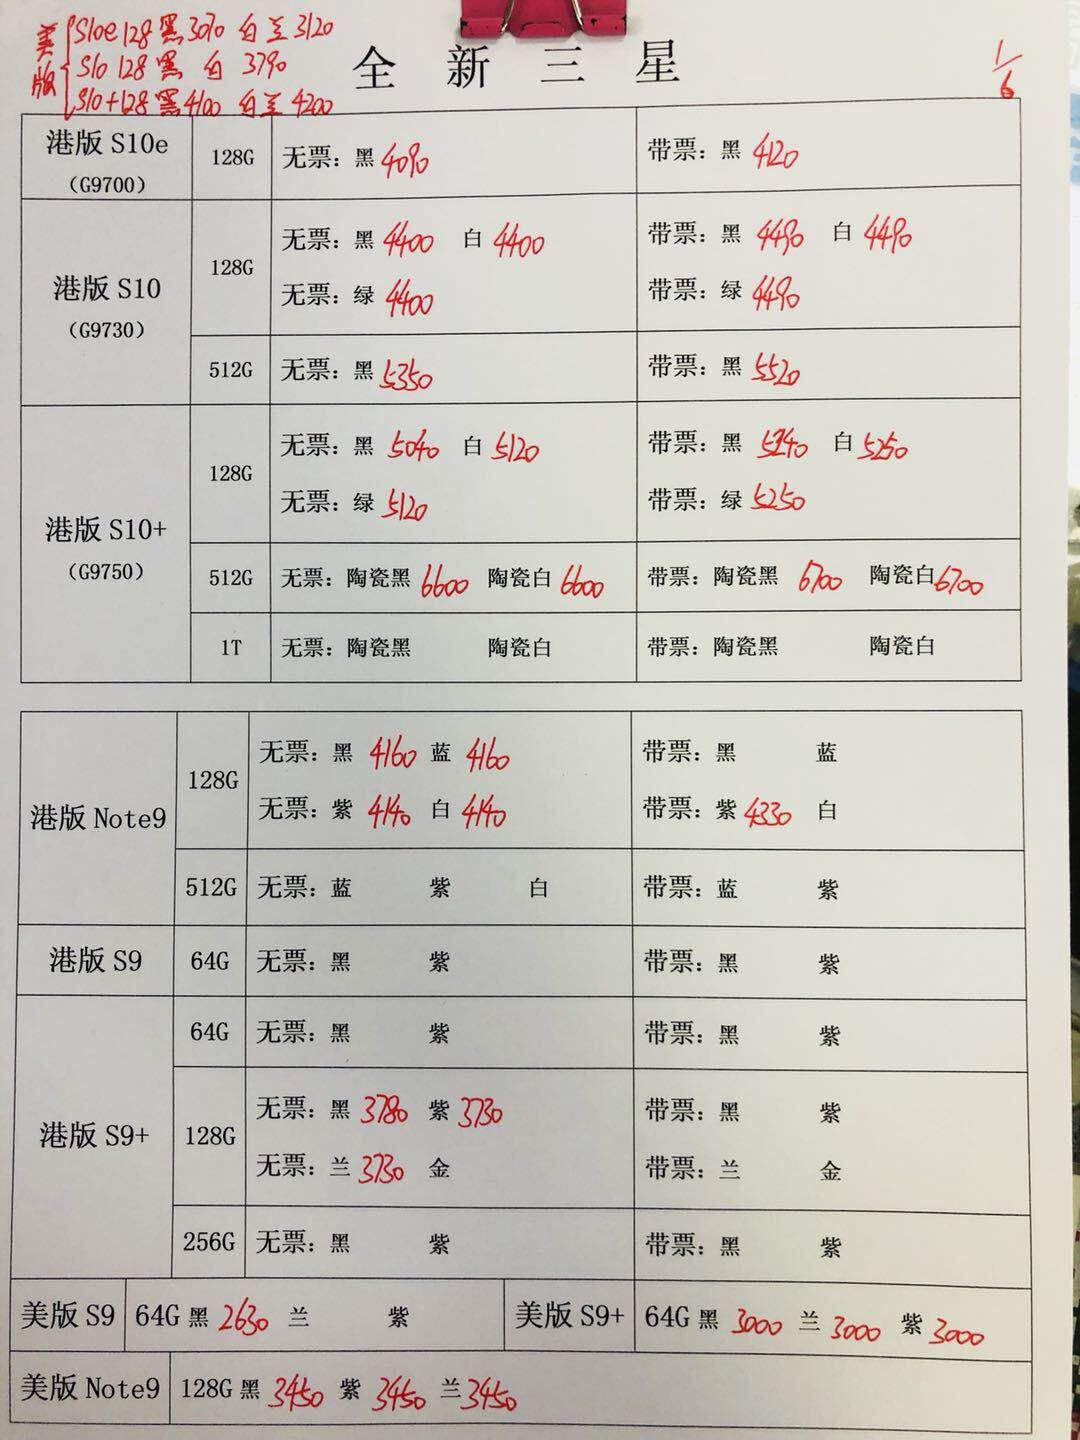 美版 S10e 128 黑 3070 白 兰 3120
S10 128 黑 白 3790
S10+128 黑 4100 白 兰 4200
全新三星
1/6
港版 S10e
(G9700)
128G 无票：黑 4090 带票：黑 4120
港版 S10
(G9730)
128G 无票：黑 4400 白 4400 带票：黑 4490 白 4490
无票：绿 4400 带票：绿 4490
512G 无票：黑 5350 带票：黑 5520
港版 S10+
(G9750)
128G 无票：黑 5040 白 5120 带票：黑 5240 白 5250
无票：绿 5120 带票：绿 5250
512G 无票：陶瓷黑 6600 陶瓷白 6600 带票：陶瓷黑 6700 陶瓷白 6700
1T 无票：陶瓷黑 陶瓷白 带票：陶瓷黑 陶瓷白
港版 Note9
128G 无票：黑 4160 蓝 4160 带票：黑 蓝
无票：紫 4140 白 4140 带票：紫 4330 白
512G 无票：蓝 紫 白 带票：蓝 紫
港版 S9 64G 无票：黑 紫 带票：黑 紫
港版 S9+
64G 无票：黑 紫 带票：黑 紫
128G 无票：黑 3780 紫 3730 带票：黑 紫
无票：兰 3730 金 带票：兰 金
256G 无票：黑 紫 带票：黑 紫
美版 S9 64G 黑 2630 兰 紫 美版 S9+ 64G 黑 3000 兰 3000 紫 3000
美版 Note9 128G 黑 3450 紫 3450 兰 3450